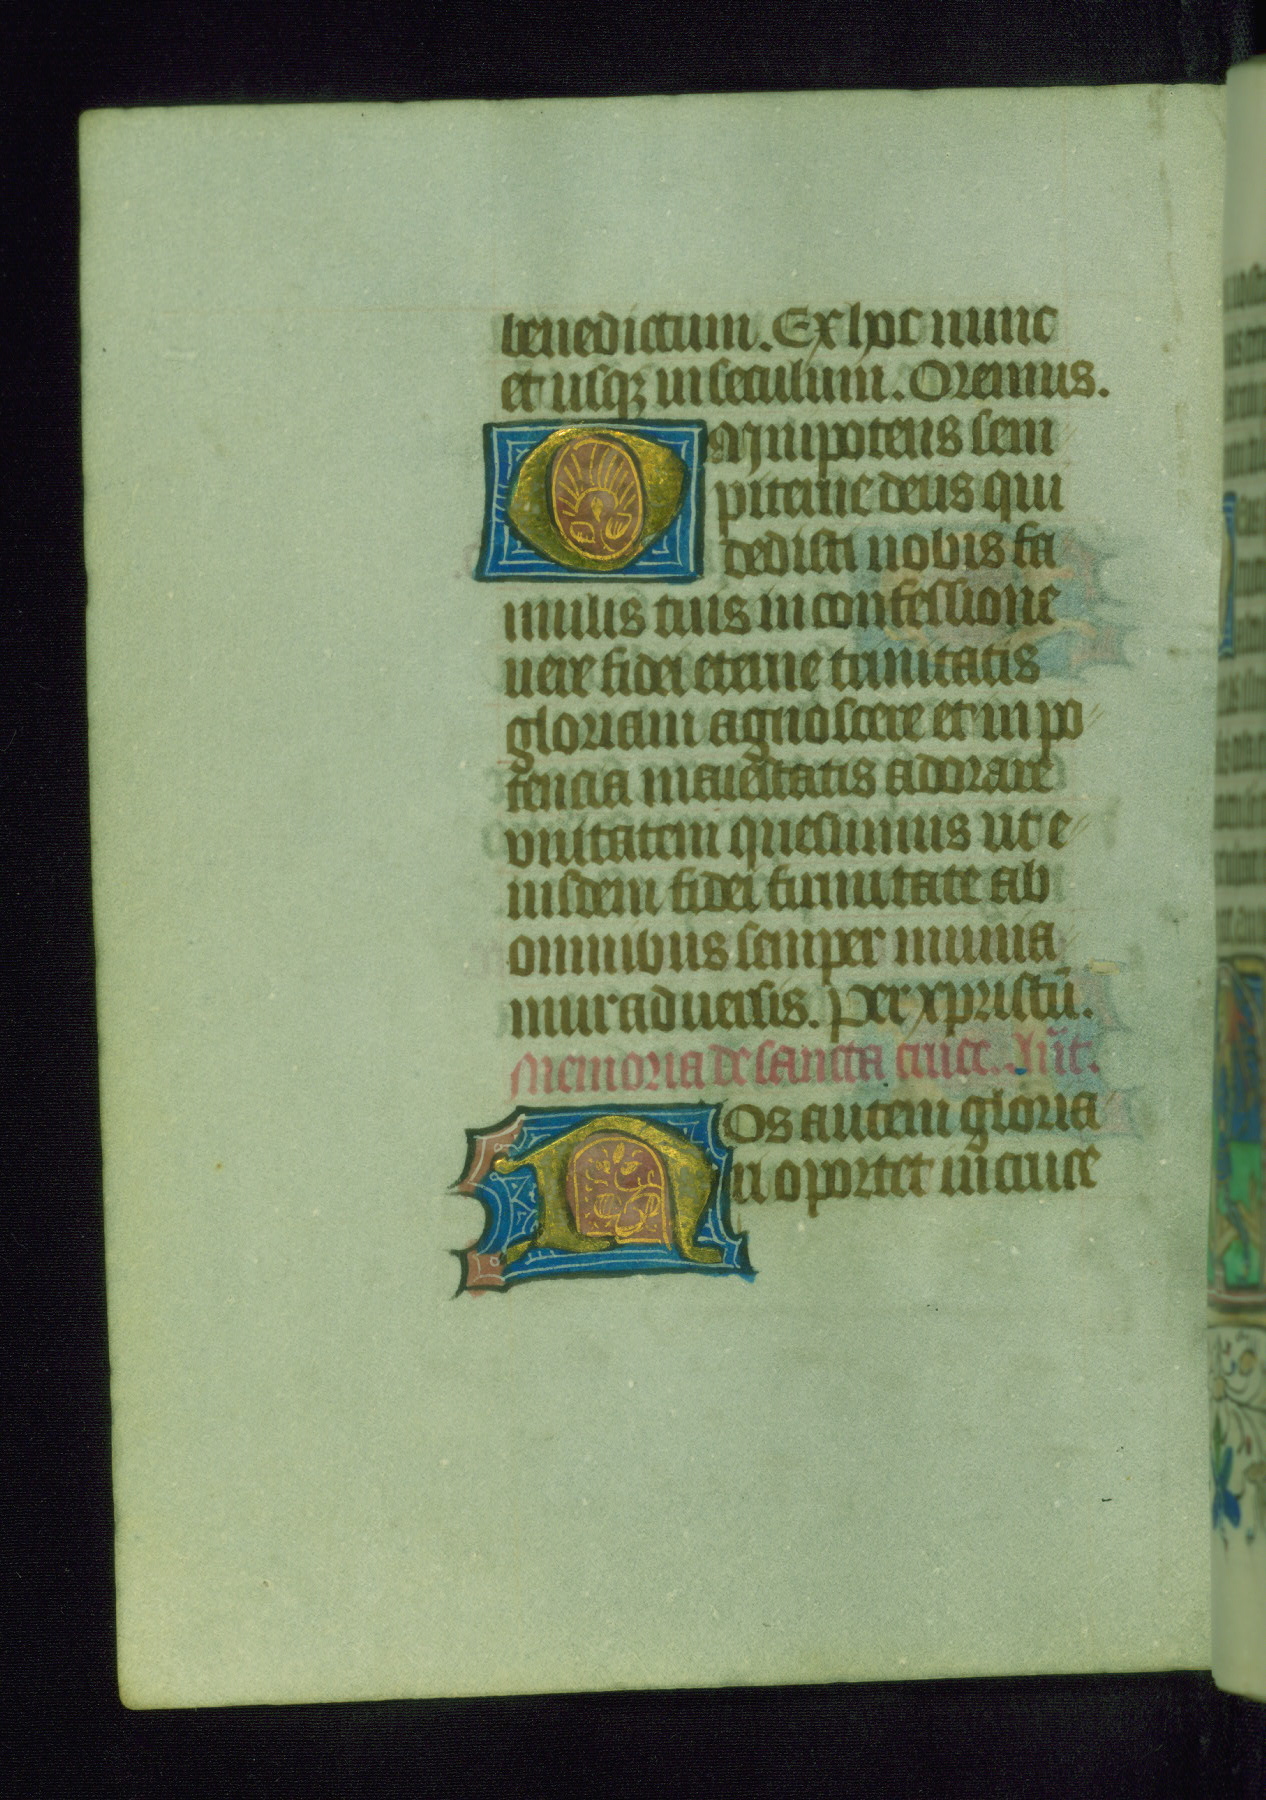 benedictum. Ex hoc nunc
et usqꝫ in seculum. Oremus.
Omnipotens sem
piterne deus qui
dedisti nobis fa
mulis tuis in confessione
uere fidei eterne trinitatis
gloriam agnoscere et in po
tencia maiestatis adorare
vnitatem quesumus ut e
iusdem fidei firmitate ab
omnibus semper munia
mur aduersis. Per xpristū.
Memoria de sancta cruce. Añt.
Nos autem gloria
ri oportet in cruce